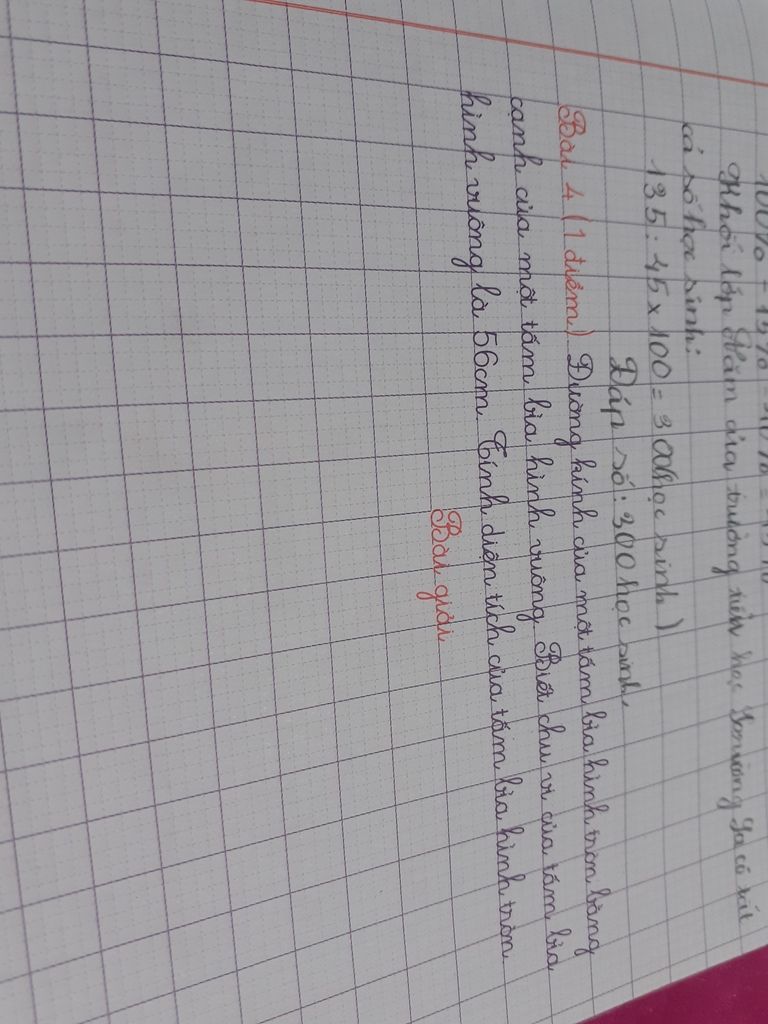 100% - 15% - 40% = 45%
Khối lớp Năm của trường tiểu học Trường Sa có tất
cả số học sinh:
135 : 45 x 100 = 300 (học sinh)
Đáp số: 300 học sinh.
Bài 4 (1 điểm) Đường kính của một tấm bìa hình tròn bằng
cạnh của một tấm bìa hình vuông. Biết chu vi của tấm bìa
hình vuông là 56cm. Tính diện tích của tấm bìa hình tròn
Bài giải